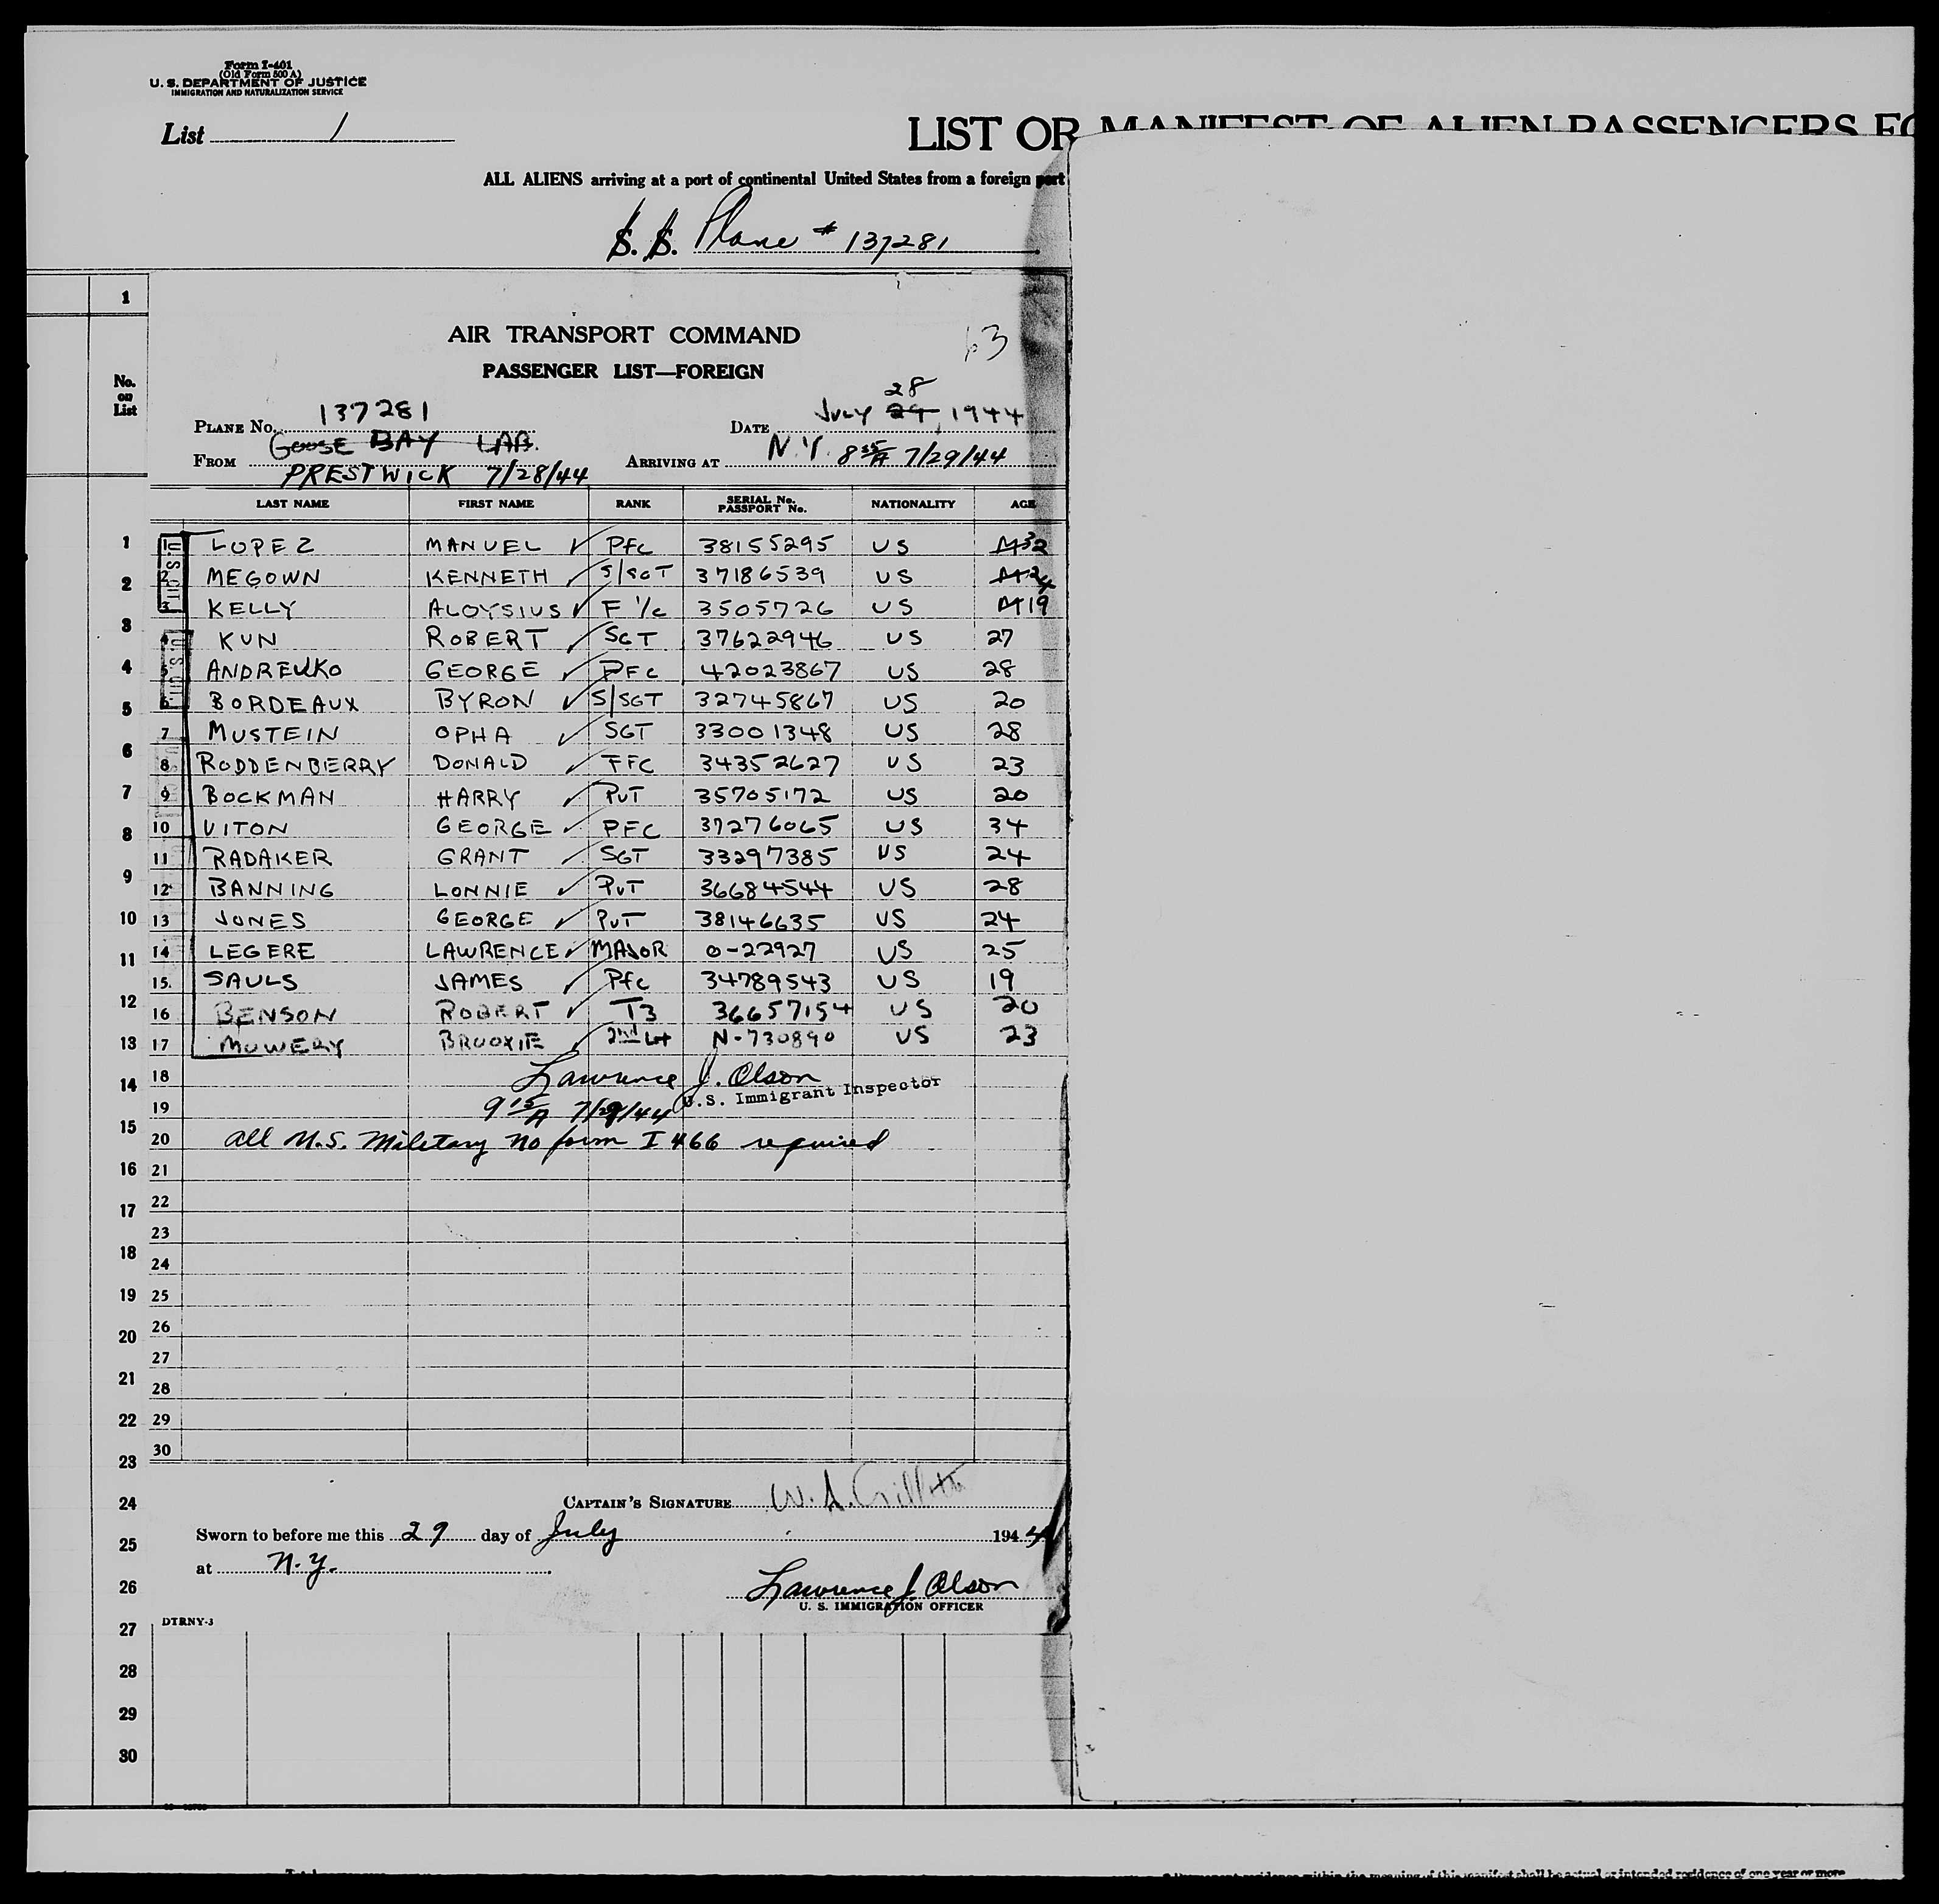 Form I-401
(Old Form 500 A)
U. S. DEPARTMENT OF JUSTICE
IMMIGRATION AND NATURALIZATION SERVICE
List 1
LIST OR MANIFEST OF ALIEN PASSENGERS FO
ALL ALIENS arriving at a port of continental United States from a foreign port
S. S. Plane # 137281
1
AIR TRANSPORT COMMAND
63
PASSENGER LIST—FOREIGN
No. on List
28
PLANE NO. 137281 DATE JULY 29, 1944
GOOSE BAY LAB.
FROM PRESTWICK 7/28/44 ARRIVING AT N.Y. 8 35 A 7/29/44
LAST NAME FIRST NAME RANK SERIAL No. PASSPORT No. NATIONALITY AGE
1 1 LOPEZ MANUEL ✓ Pfc 38155295 US 32
2 2 MEGOWN KENNETH ✓ S/SGT 37186539 US 24
3 3 KELLY ALOYSIUS ✓ F 1/c 3505726 US 19
4 4 KUN ROBERT ✓ SGT 37622946 US 27
5 ANDREUKO GEORGE ✓ PFC 42023867 US 28
5 6 BORDEAUX BYRON ✓ S/SGT 32745867 US 20
6 7 MUSTEIN OPHA ✓ SGT 33001348 US 28
8 RODDENBERRY DONALD ✓ PFC 34352627 US 23
7 9 BOCKMAN HARRY ✓ PVT 35705172 US 20
8 10 VITON GEORGE ✓ PFC 37276065 US 34
11 RADAKER GRANT ✓ SGT 33297385 US 24
9 12 BANNING LONNIE ✓ PVT 36684544 US 28
10 13 JONES GEORGE ✓ PVT 38146635 US 24
11 14 LEGERE LAWRENCE ✓ MAJOR O-22927 US 25
15. SAULS JAMES ✓ Pfc 34789543 US 19
12 16 BENSON ROBERT ✓ T3 36657154 US 20
13 17 MOWERY BROOXIE ✓ 2nd Lt N-730890 US 23
14 18 Lawrence J. Olson
U.S. Immigrant Inspector
19 9 15 A 7/29/44
15
20 All U.S. Military no form I 466 required
16 21
22
17
23
18
24
19 25
26
20
27
21
28
22 29
30
23
24 CAPTAIN'S SIGNATURE
25 Sworn to before me this 29 day of July 1944
at N.Y.
26 Lawrence J. Olson
U. S. IMMIGRATION OFFICER
27 DTRNY-3
28
29
30